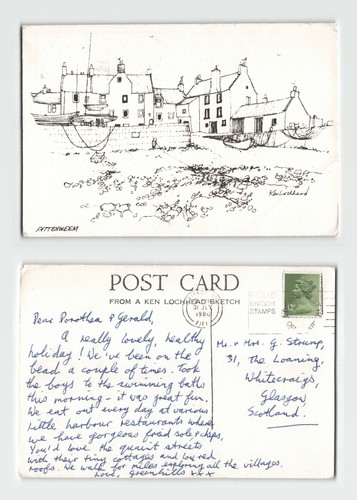 Ken Lochhead
PITTENWEEM
POST CARD
FROM A KEN LOCHHEAD SKETCH
31 JLY
1980
FIFE
BRITISH
STAMPS
Dear Dorothea & Gerald,
A really lovely, healthy
holiday! We've been on the
beach a couple of times. Took
the boys to the swimming baths
this morning - it was great fun.
We eat out every day at various
little harbour restaurants where
we have gorgeous fried sole & chips,
You'd love the quaint streets
with their tiny cottages and low red
roofs. We walk for miles exploring all the villages.
Love, Greenhills xxx
Mr. & Mrs. G. Strump,
31, The Loaning,
Whitecraigs,
Glasgow
Scotland.